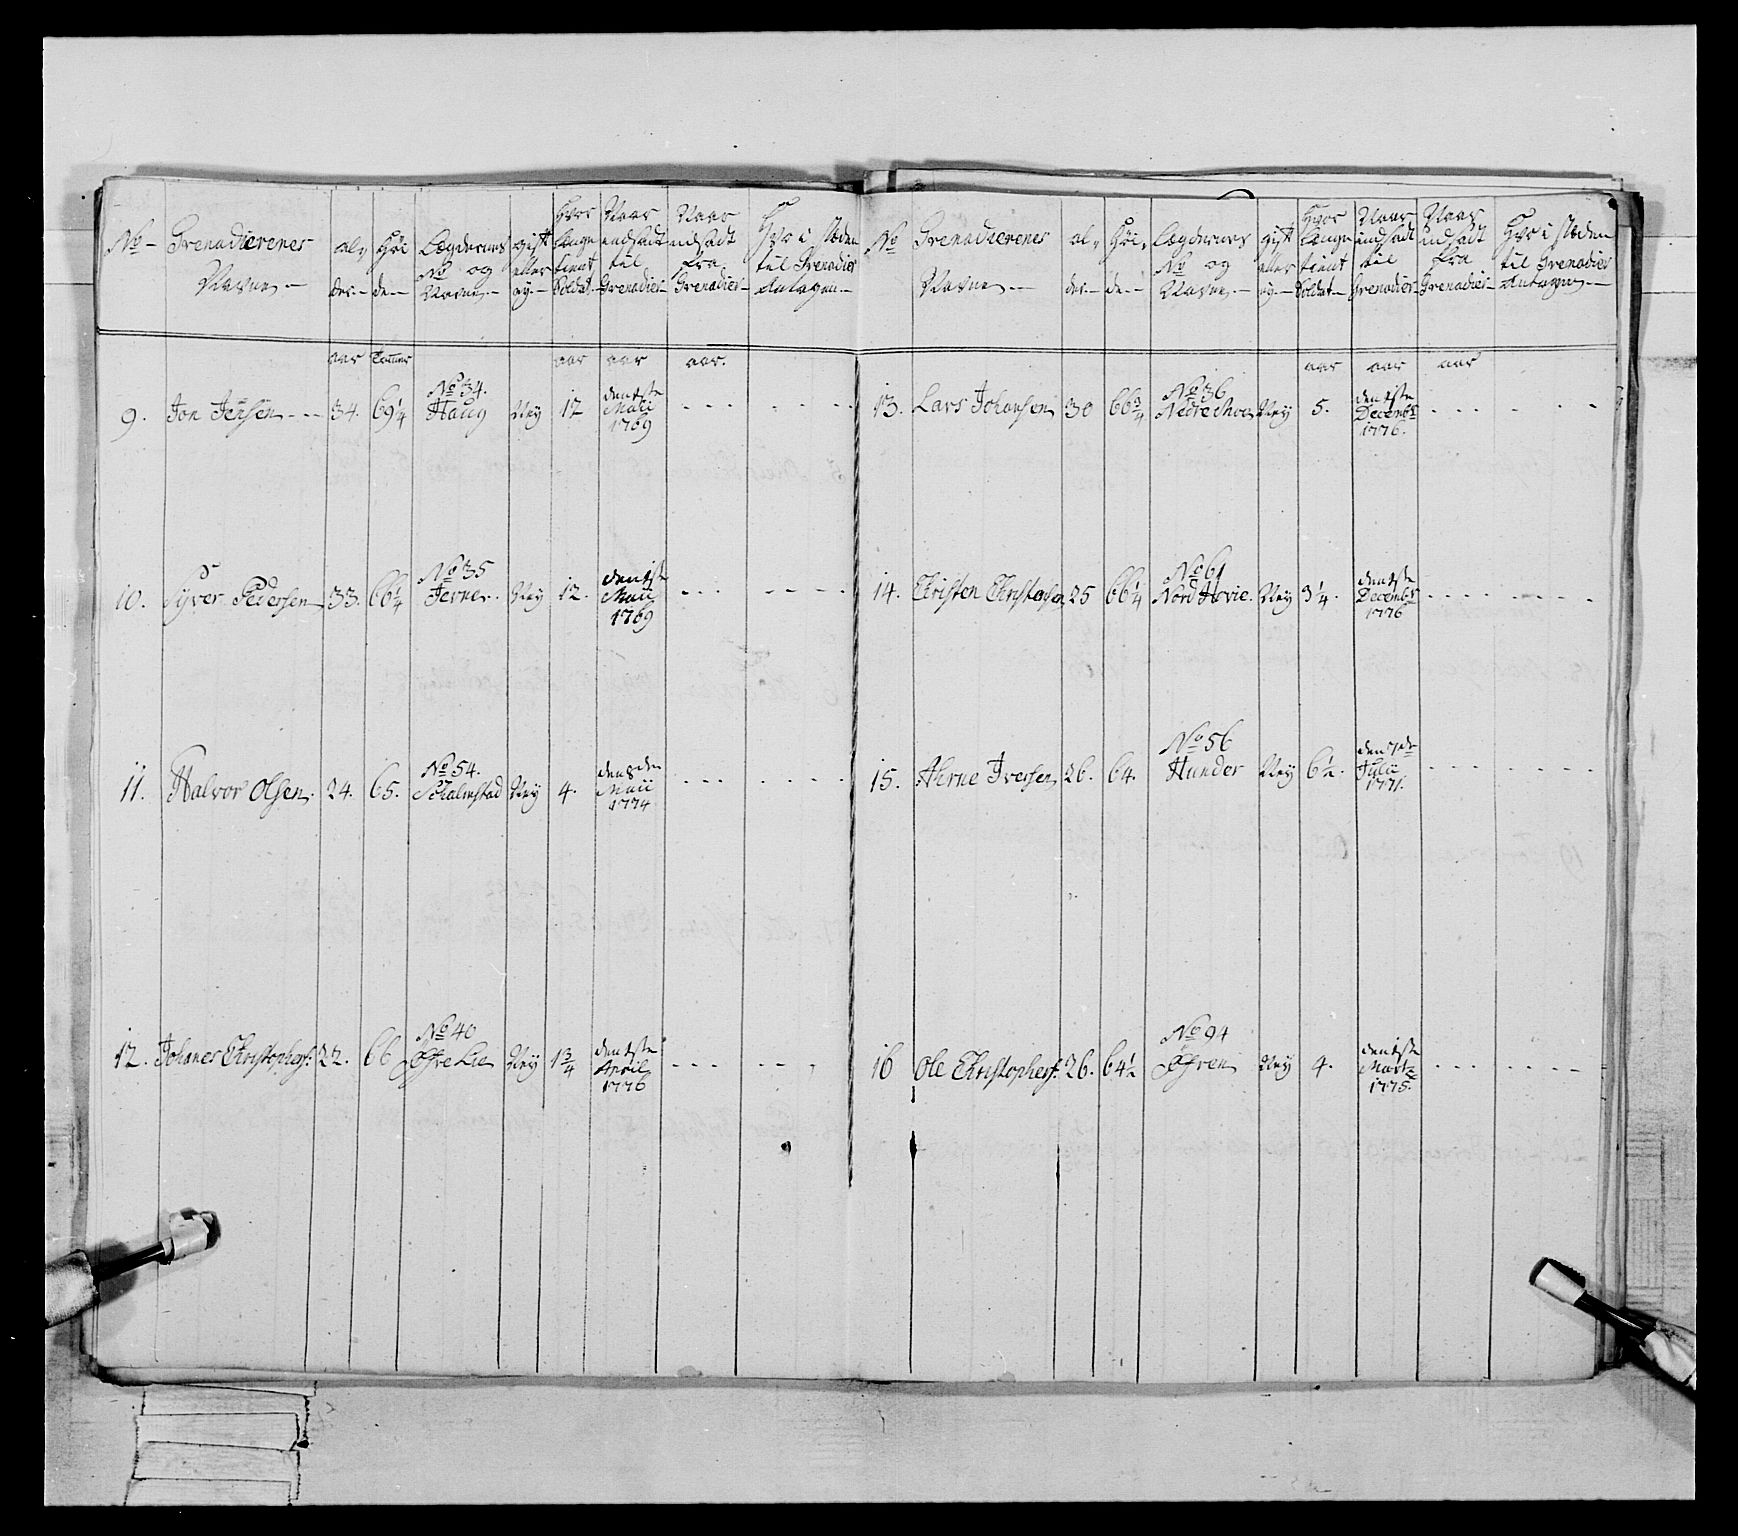 No Grenadierenes Navne al,, der Høi de Lægdernes No og Navne gift eller ey Hvor længe tient Soldat Naar indsadt til Grenadier Naar udsadt fra Grenadier Hvo i stæden til Grenadier Antagen
aar Tomer aar aar aar.
9. Jon Jensen 34. 69 1/4 No 34. Haug Ney 12 den 1ste Maii 1769
10. Syver Pedersen 33. 66 1/4 No 35 Jerne Ney 12. den 1ste Maii 1769
11. Halvor Olsen 24. 65. No 54. Schalmstad Ney 4. den 8den Maii 1774
12. Johanes Christophers: 22. 66 No 40 Øfre Lie Ney 1 3/4 den 1ste April 1776
No Grenadierenes Navne al,, der Høi,, de Lægdernes No og Navne gift eller ey Hvor længe tient Soldat Naar indsadt til Grenadier Naar udsadt fra Grenadier Hvo i stæden til Grenadier Antagen
aar aar aar
13. Lars Johansen 30 66 3/4 No 36 Nedre Moe Ney 5. den 1ste Decembr 1776.
14. Christen Christensen 25 66 1/4 No 61 Nord Hovie. Ney 3 1/4. den 1ste Decembr 1776
15. Ahrne Iversen 26. 64. No 56 Hunder Ney 6 1/2. den 7de Julii 1771.
16 Ole Christophers: 26. 64 1/2 No 94 Øfren Ney 4. den 1ste Martz 1775.